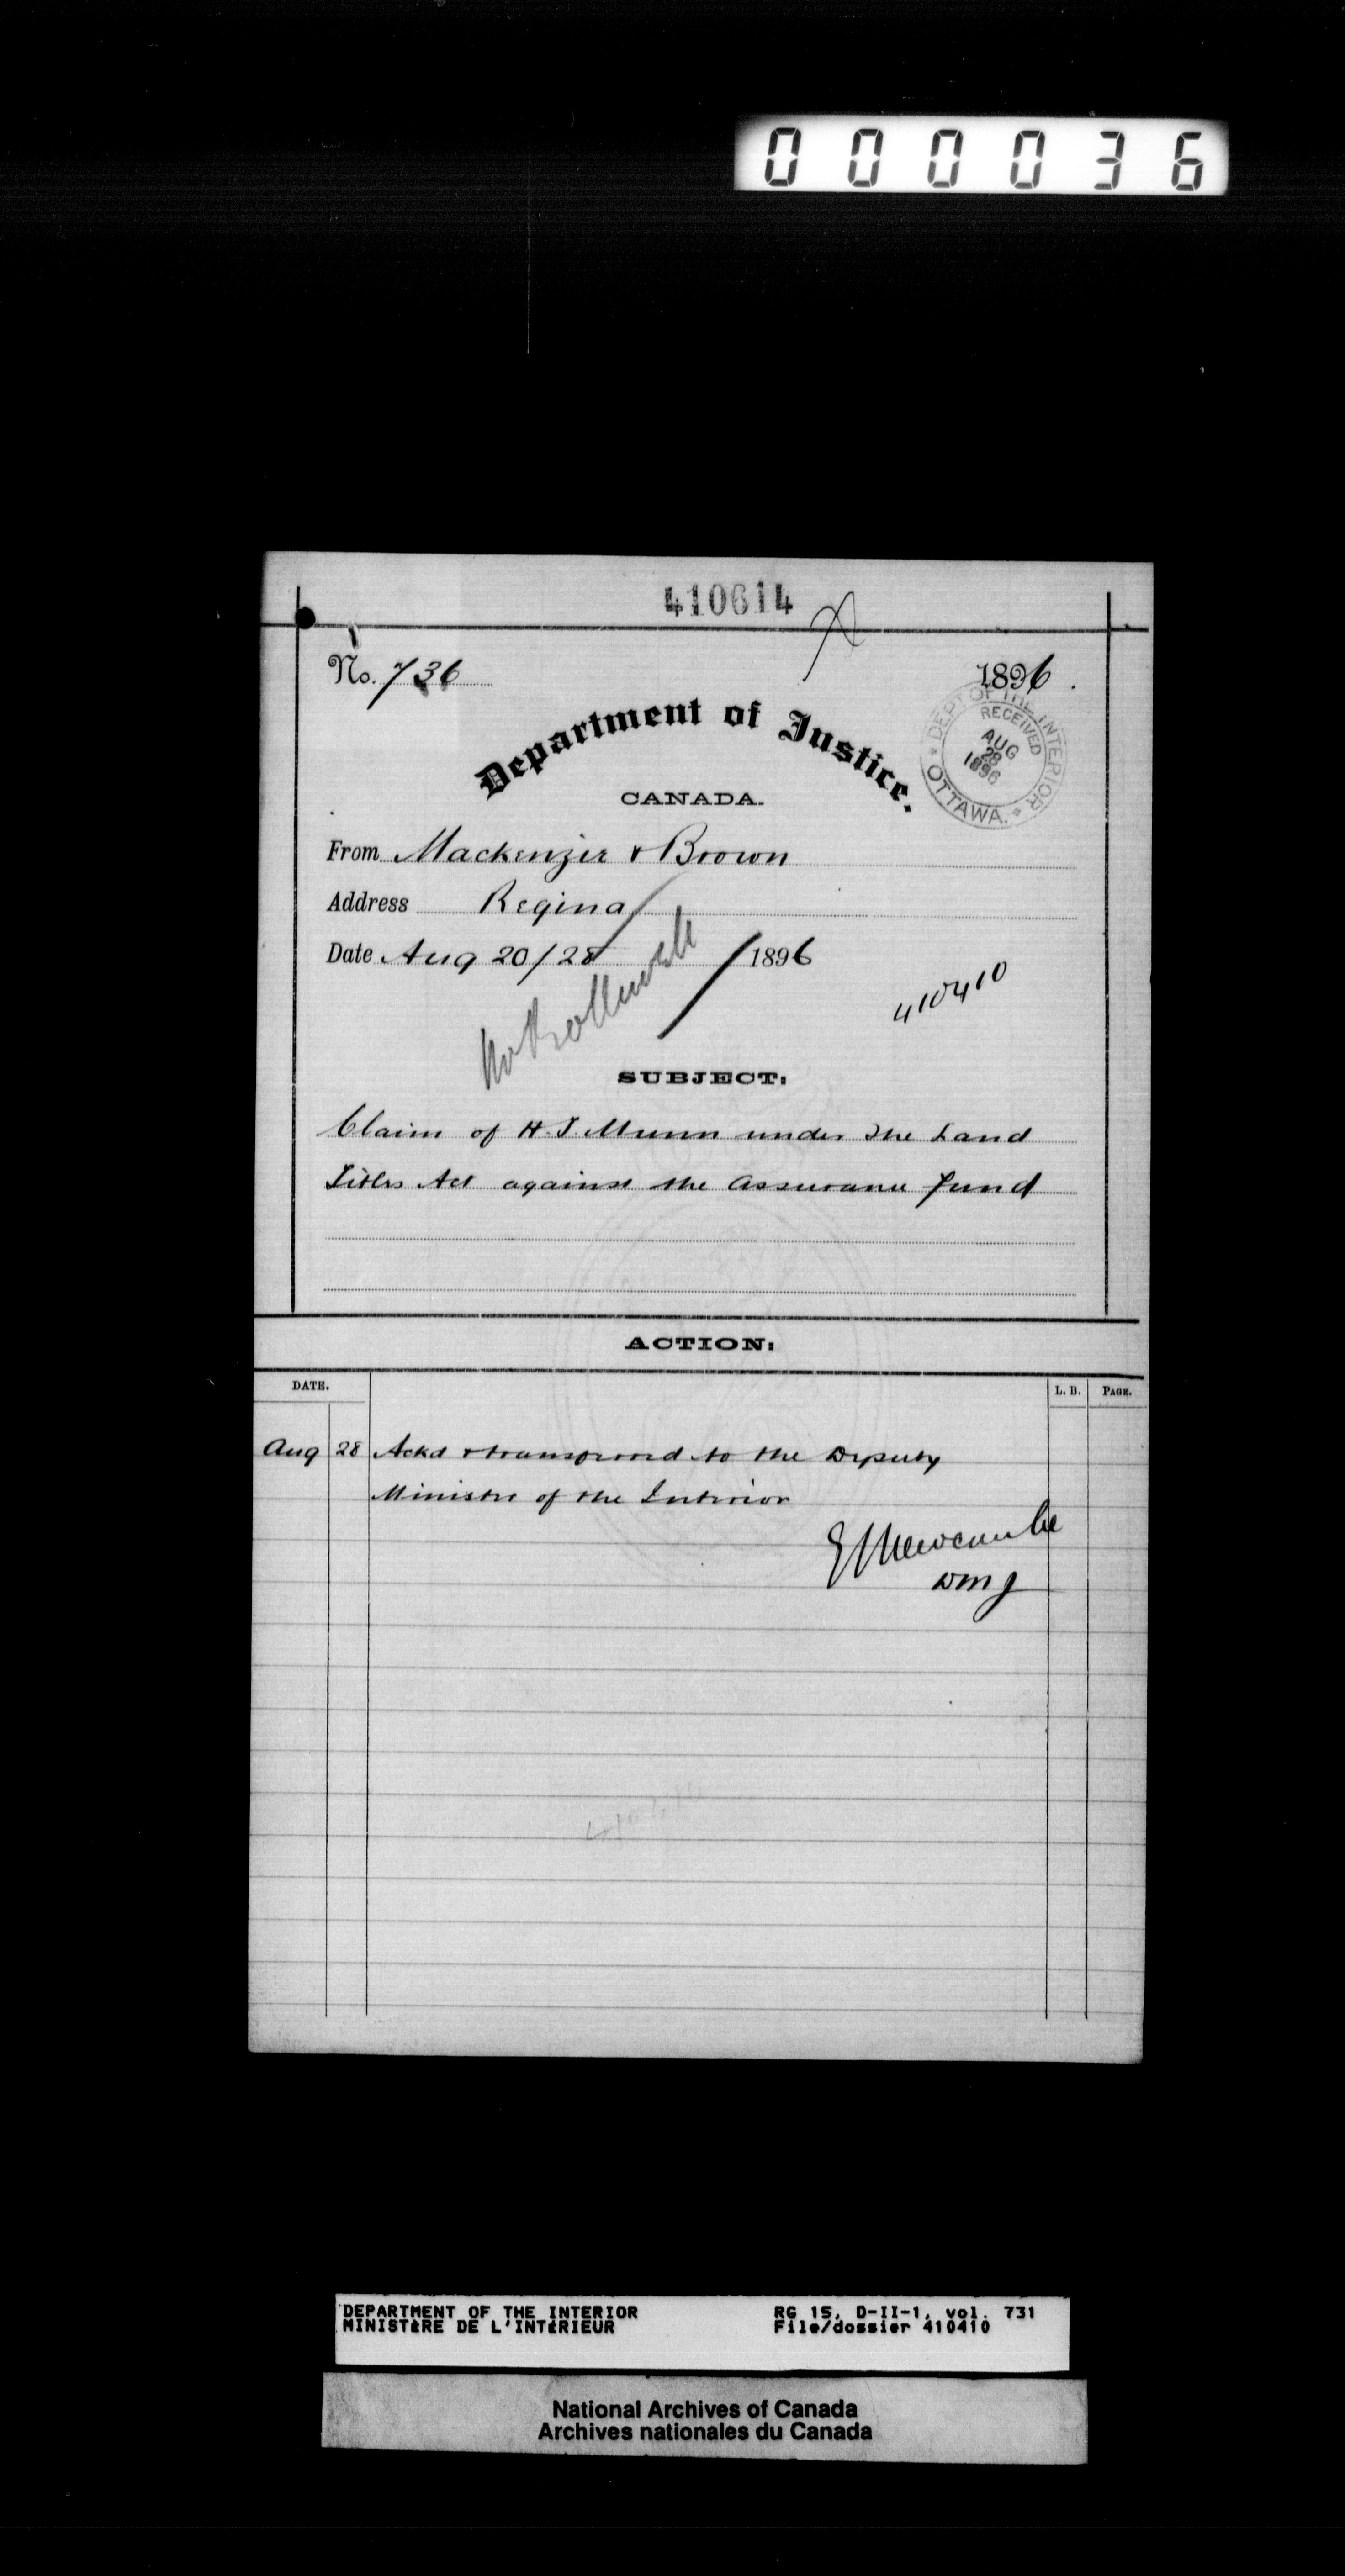 000036
410614
No. 736
1896
Department of Justice.
CANADA.
DEPT OF THE INTERIOR
RECEIVED
AUG
28
1896
OTTAWA.
From Mackenzie & Brown
Address Regina
Date Aug 20/28 1896
410410
SUBJECT:
Claim of H. J. Munn under the Land
Titles Act against the Assurance fund
ACTION:
DATE. L. B. PAGE.
Aug 28 Ackd & transferred to the Deputy
Minister of the Interior
E L Newcombe
DMJ
DEPARTMENT OF THE INTERIOR
MINISTÈRE DE L'INTÉRIEUR
RG 15, D-II-1, vol. 731
File/dossier 410410
National Archives of Canada
Archives nationales du Canada